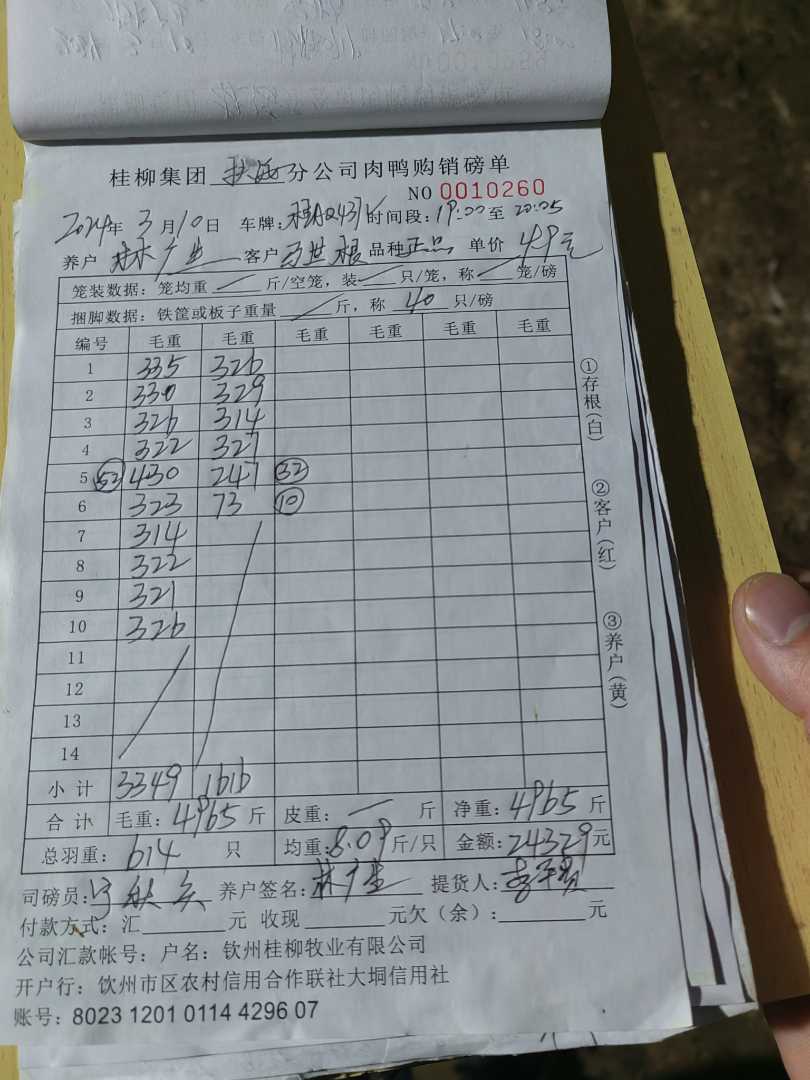 桂柳集团 分公司肉鸭购销磅单
NO 0010260
2024年 3月10日 车牌: 时间段:19:00至20:05
养户 林广生 客户 马世根 品种 正品 单价 4.9元
笼装数据: 笼均重 / 斤/空笼, 装 / 只/笼, 称 / 笼/磅
捆脚数据: 铁筐或板子重量 / 斤, 称 40 只/磅
编号 毛重 毛重 毛重 毛重 毛重 毛重
1 335 326
2 330 329
3 326 314
4 322 327
5 53 430 247 32
6 323 73 10
7 314
8 322
9 321
10 326
11
12
13
14
小计 3349 1616
合计 毛重: 4965 斤 皮重: / 斤 净重: 4965 斤
总羽重: 614 只 均重: 8.09 斤/只 金额: 24329元
司磅员: 养户签名: 林广生 提货人:
付款方式: 汇 元 收现 元欠(余): 元
公司汇款帐号: 户名: 钦州桂柳牧业有限公司
开户行: 饮州市区农村信用合作联社大垌信用社
账号: 8023 1201 0114 4296 07
①存根(白)
②客户(红)
③养户(黄)